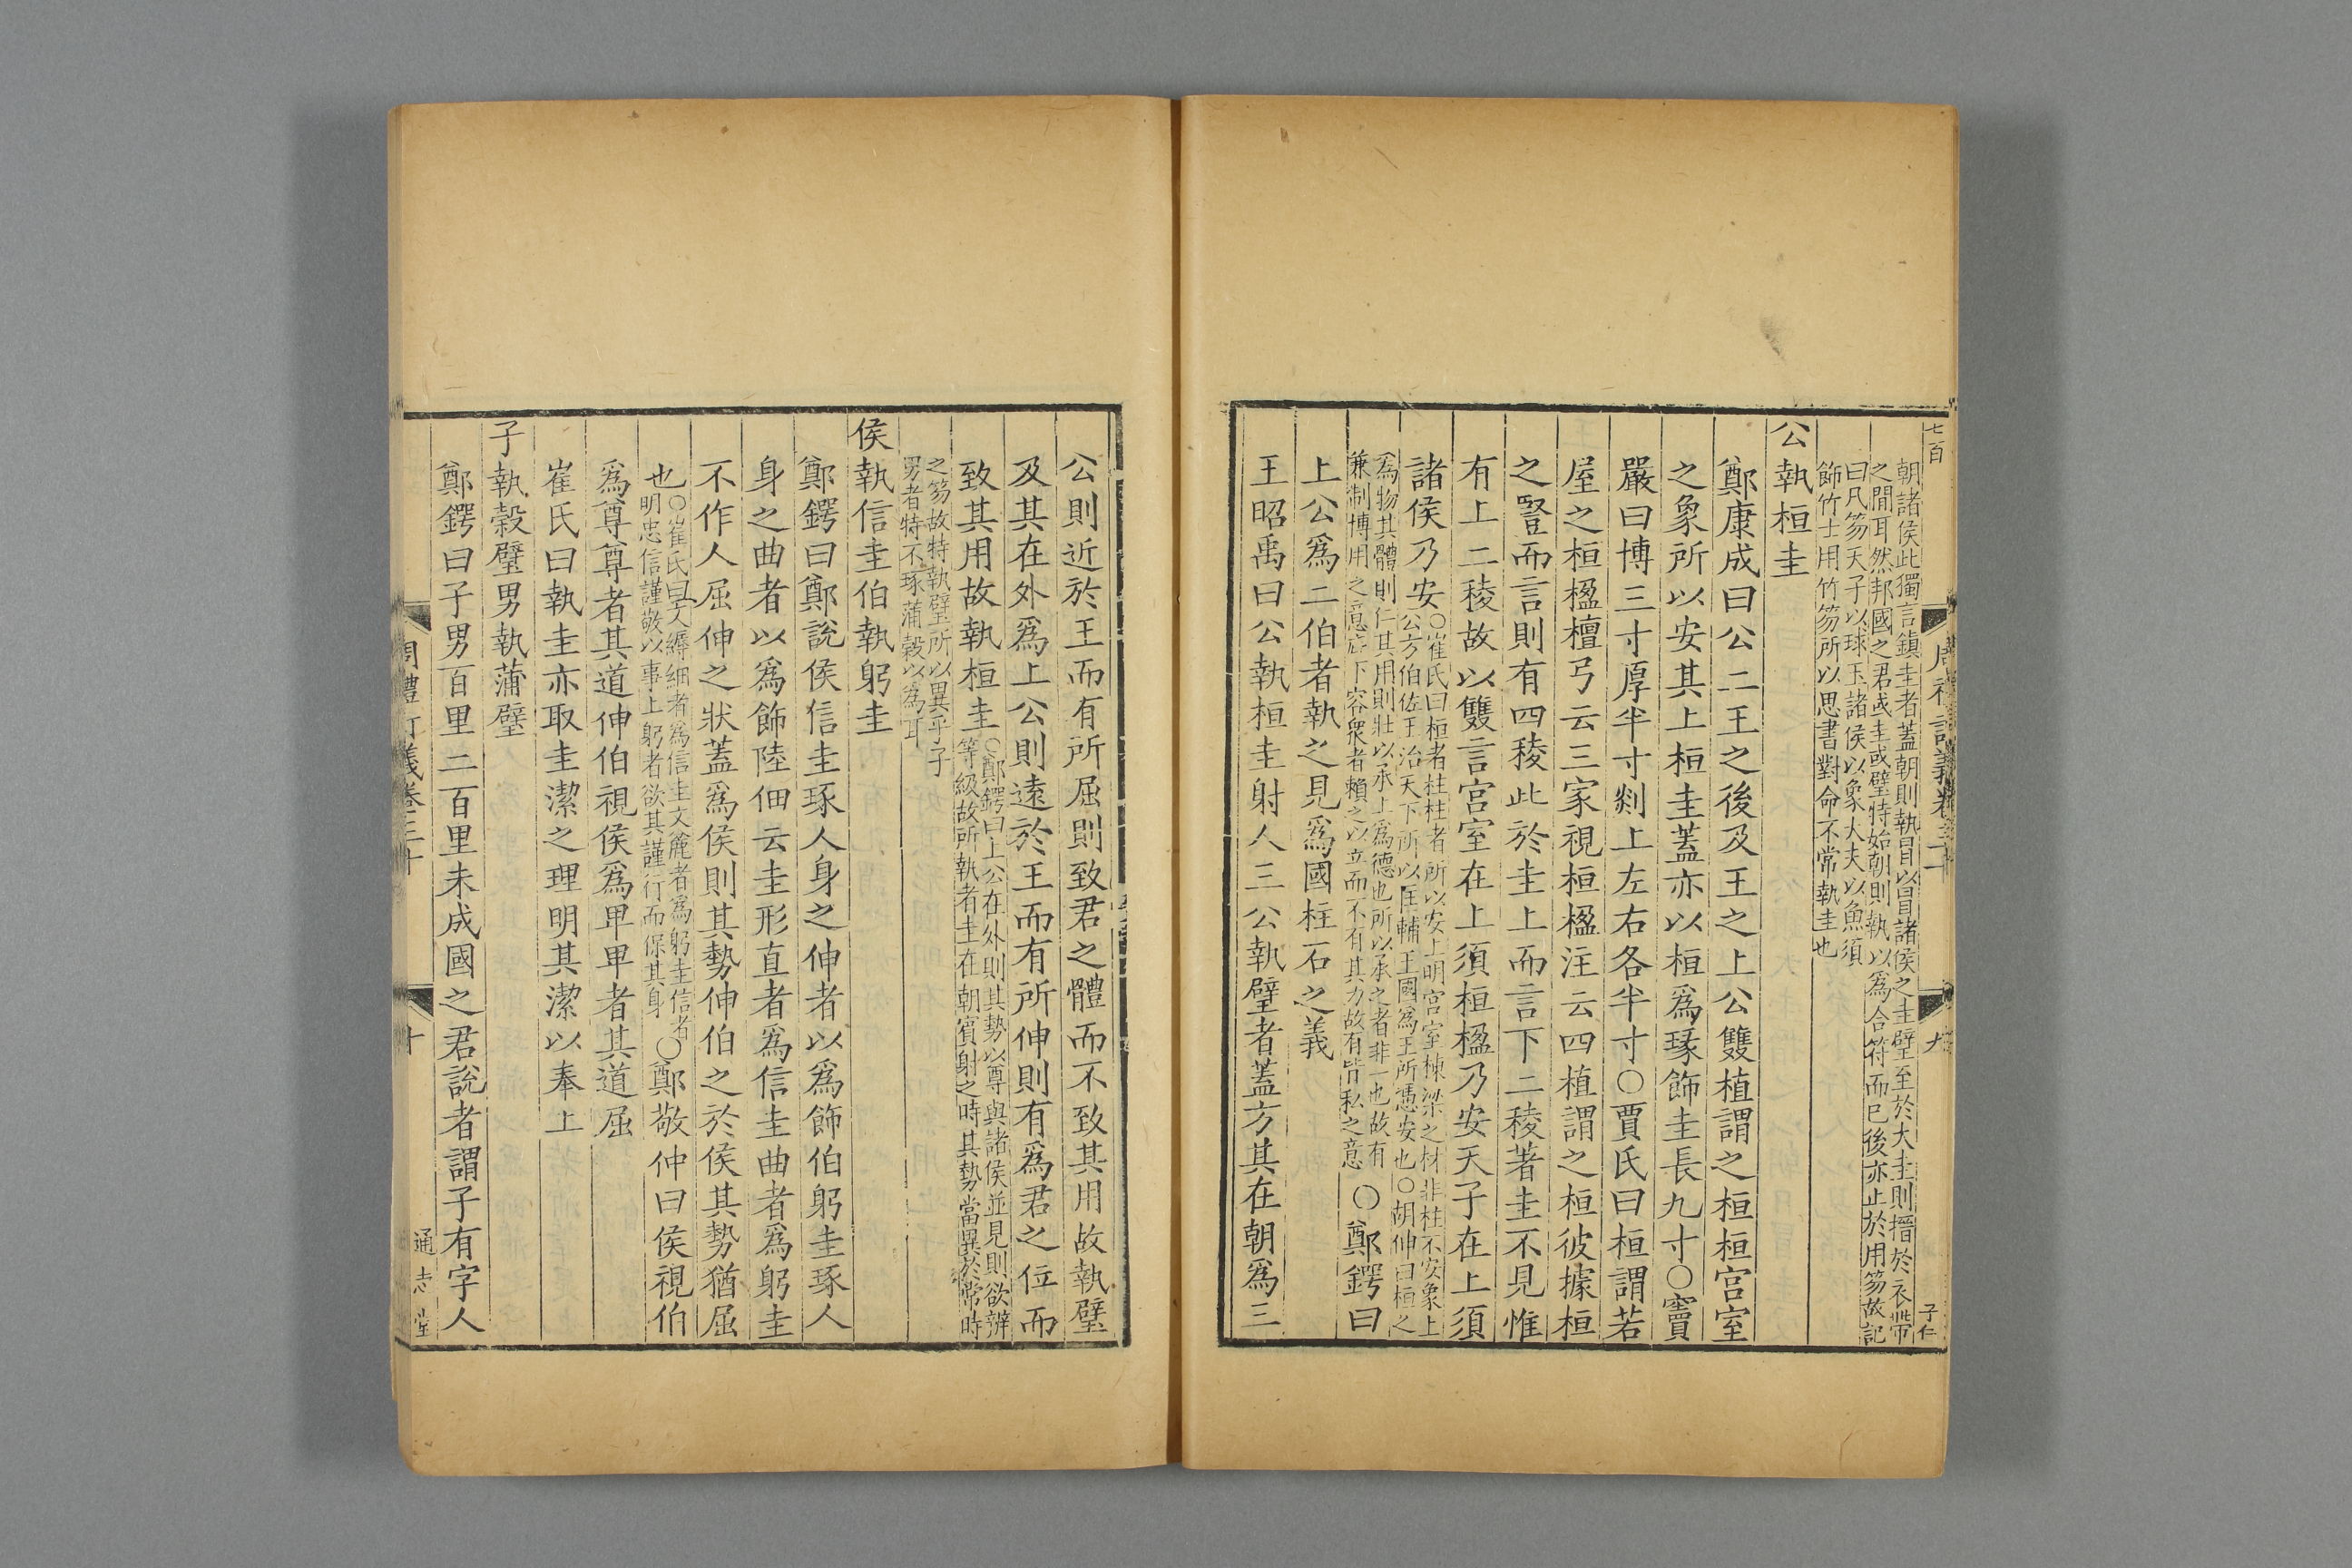 七百
周禮訂義卷三十
九
子仁
朝諸侯此獨言鎮圭者蓋朝則執冒以冒諸侯之圭璧至於大圭則搢於衣帶
之間耳然邦國之君或圭或璧特始朝則執以為合符而已後亦止於用笏故記
曰凡笏天子以球玉諸侯以象大夫以魚須
飾竹士用竹笏所以思書對命不常執圭也
公執桓圭
鄭康成曰公二王之後及王之上公雙植謂之桓桓宫室
之象所以安其上桓圭蓋亦以桓爲瑑飾圭長九寸○竇
嚴曰博三寸厚半寸剡上左右各半寸○賈氏曰桓謂若
屋之桓楹檀弓云三家視桓楹注云四植謂之桓彼據桓
之豎而言則有四稜此於圭上而言下二稜著圭不見惟
有上二稜故以雙言宫室在上須桓楹乃安天子在上須
諸侯乃安○崔氏曰桓者柱柱者所以安上明宫室棟梁之材非柱不安象上
公方伯佐王治天下所以匡輔王國為王所憑安也○胡伸曰桓之
為物其體則仁其用則壯以承上為德也所以承之者非一也故有
兼制博用之意庇下容衆者賴之以立而不有其力故有皆私之意○鄭鍔曰
上公爲二伯者執之見爲國柱石之義
王昭禹曰公執桓圭射人三公執璧者蓋方其在朝爲三
公則近於王而有所屈則致君之體而不致其用故執璧
及其在外爲上公則遠於王而有所伸則有爲君之位而
致其用故執桓圭○鄭鍔曰上公在外則其勢以尊與諸侯並見則欲辨
等級故所執者圭在朝賓射之時其勢當異於常時
之笏故特執璧所以異乎子
男者特不琢蒲穀以為耳
侯執信圭伯執躬圭
鄭鍔曰鄭說侯信圭琢人身之伸者以爲飾伯躬圭琢人
身之曲者以爲飾陸佃云圭形直者爲信圭曲者爲躬圭
不作人屈伸之狀蓋爲侯則其勢伸伯之於侯其勢猶屈
也○崔氏曰文縟細者為信圭文麄者為躬圭信者
明忠信謹敬以事上躬者欲其謹行而保其身○鄭敬仲曰侯視伯
爲尊尊者其道伸伯視侯爲卑卑者其道屈
崔氏曰執圭亦取圭潔之理明其潔以奉上
子執穀璧男執蒲璧
鄭鍔曰子男百里二百里未成國之君說者謂子有字人
周禮訂義卷三十
十
通志堂